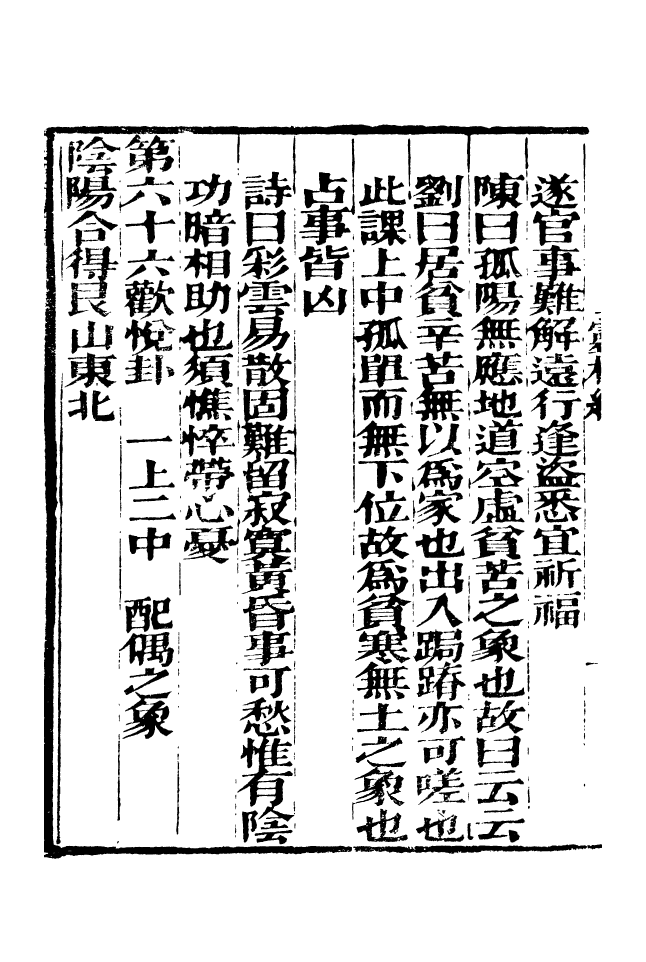 遂官事難解遠行逢盜悉宜祈福
陳曰孤陽無應地道空虛貧苦之象也故曰云云
劉曰居貧辛苦無以為家也出入跼蹐亦可嗟也
此課上中孤單而無下位故為貧寒無土之象也
占事皆凶
詩曰彩雲易散固難留寂寞黃昏事可愁惟有陰
功暗相助也須憔悴帶心憂
第六十六歡悅卦　一上二中　配偶之象
陰陽合得艮山東北